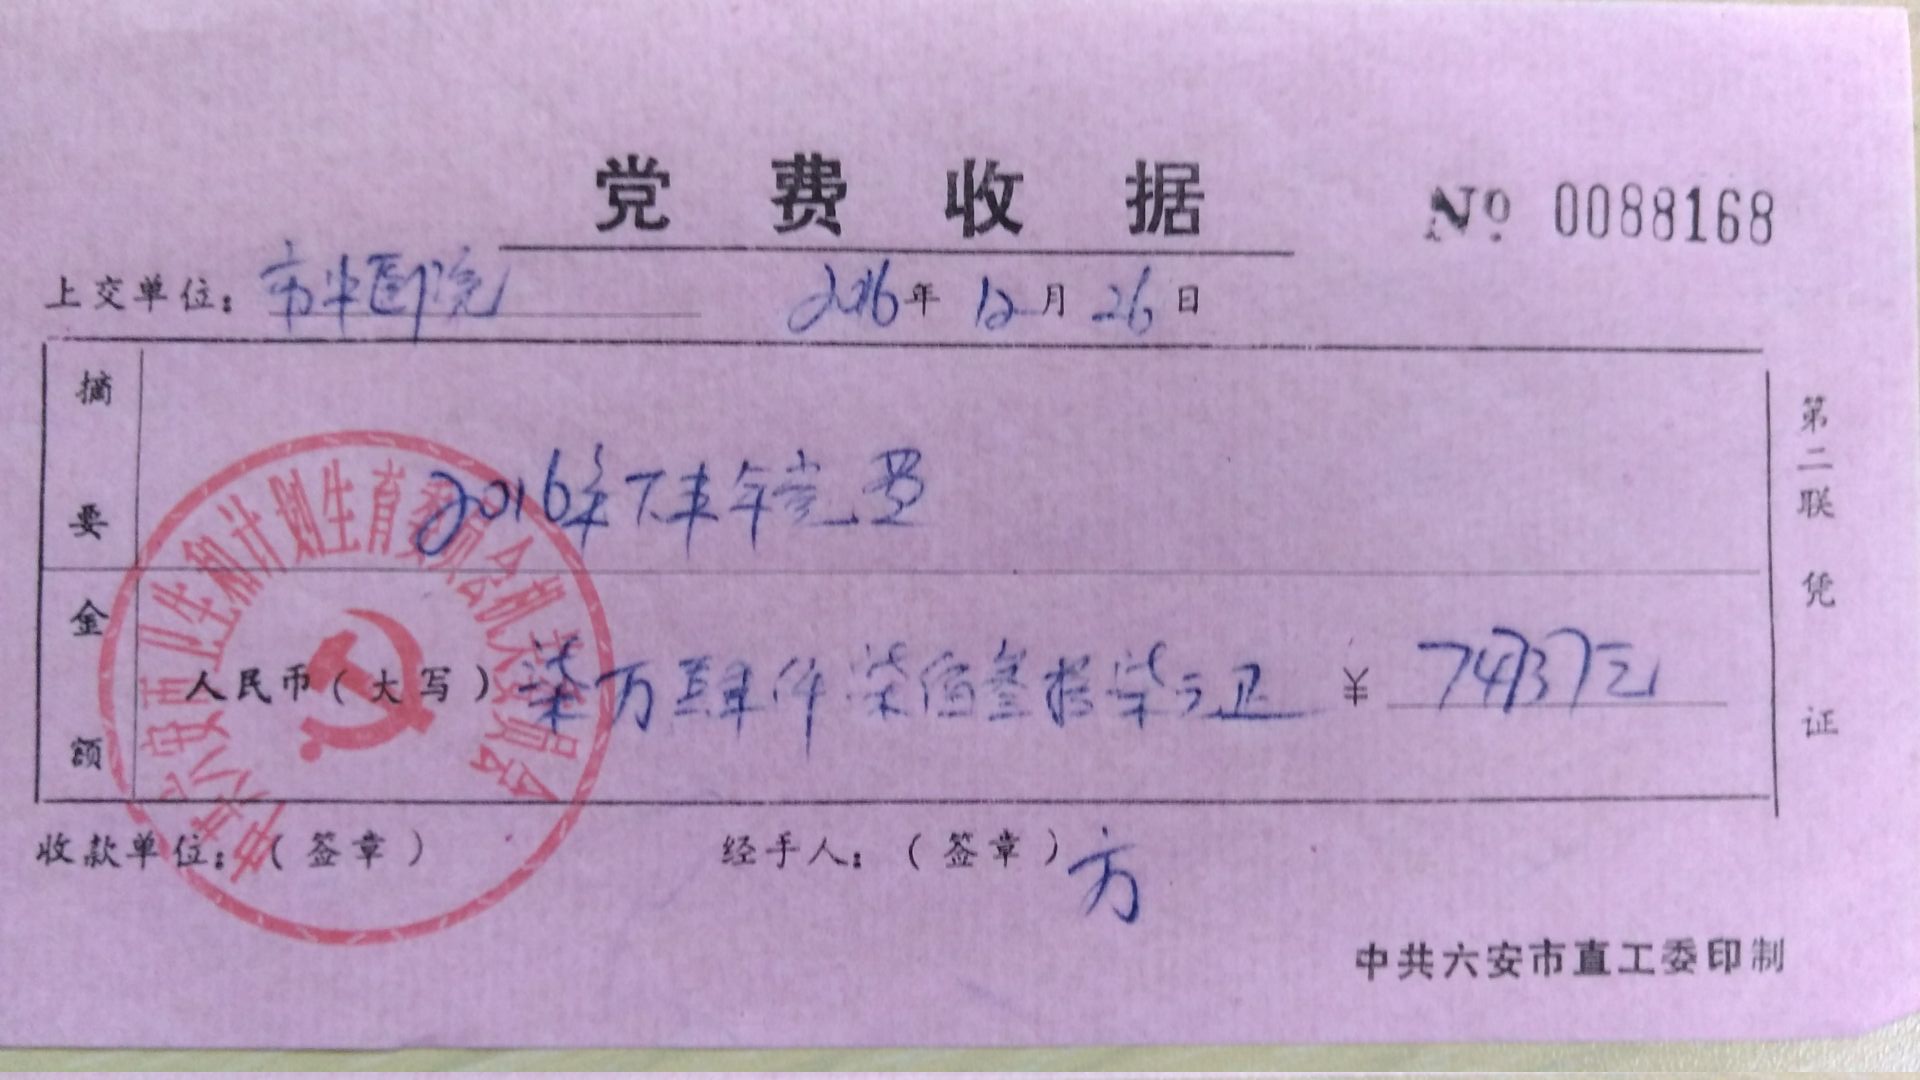 党费收据
№ 0088168
上交单位：市中医院 2016年12月26日
摘要 2016年下半年党费
金额 人民币（大写）柒万肆仟柒佰叁拾柒元正 ¥ 74737元
收款单位：（签章） 经手人：（签章）方
中共六安市直工委印制
第二联 凭证
中共六安市卫生和计划生育委员会机关委员会